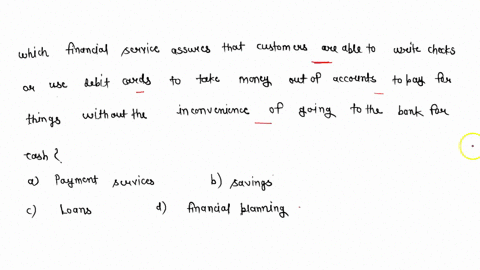 which financial service assures that customers are able to write checks
or use debit cards to take money out of accounts to pay for
things without the inconvenience of going to the bank for
cash?
a) Payment services b) savings
c) Loans d) financial planning